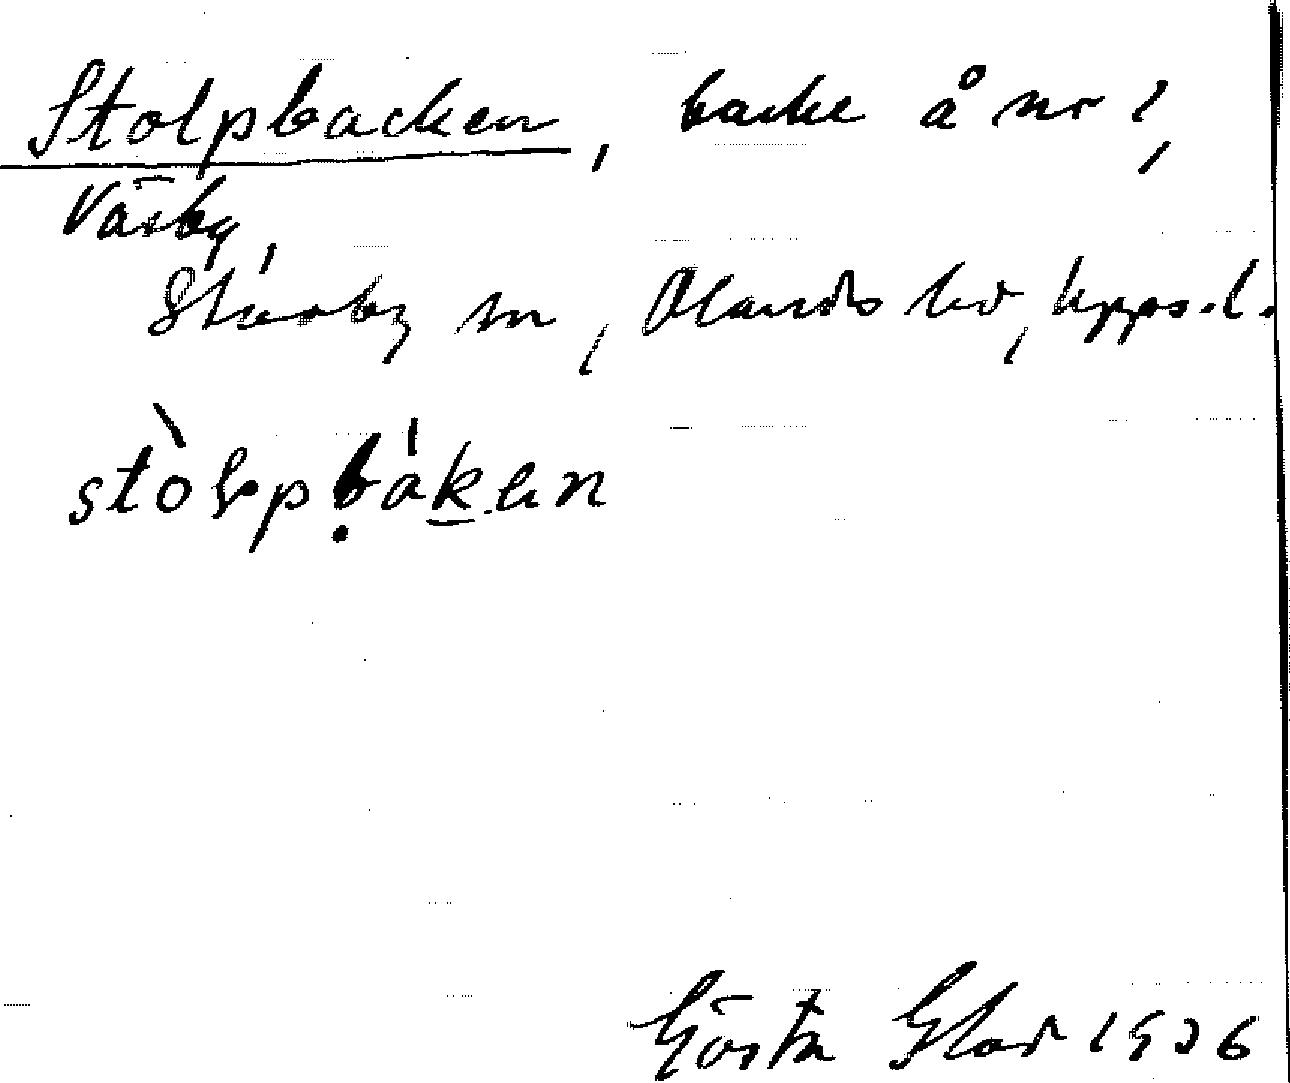 Stolpbacken, backe å nr 1,
Väsby,
Skäfby sn, Olands hd, Upps. l.
stòlpbáken
Gösta Glad 1936